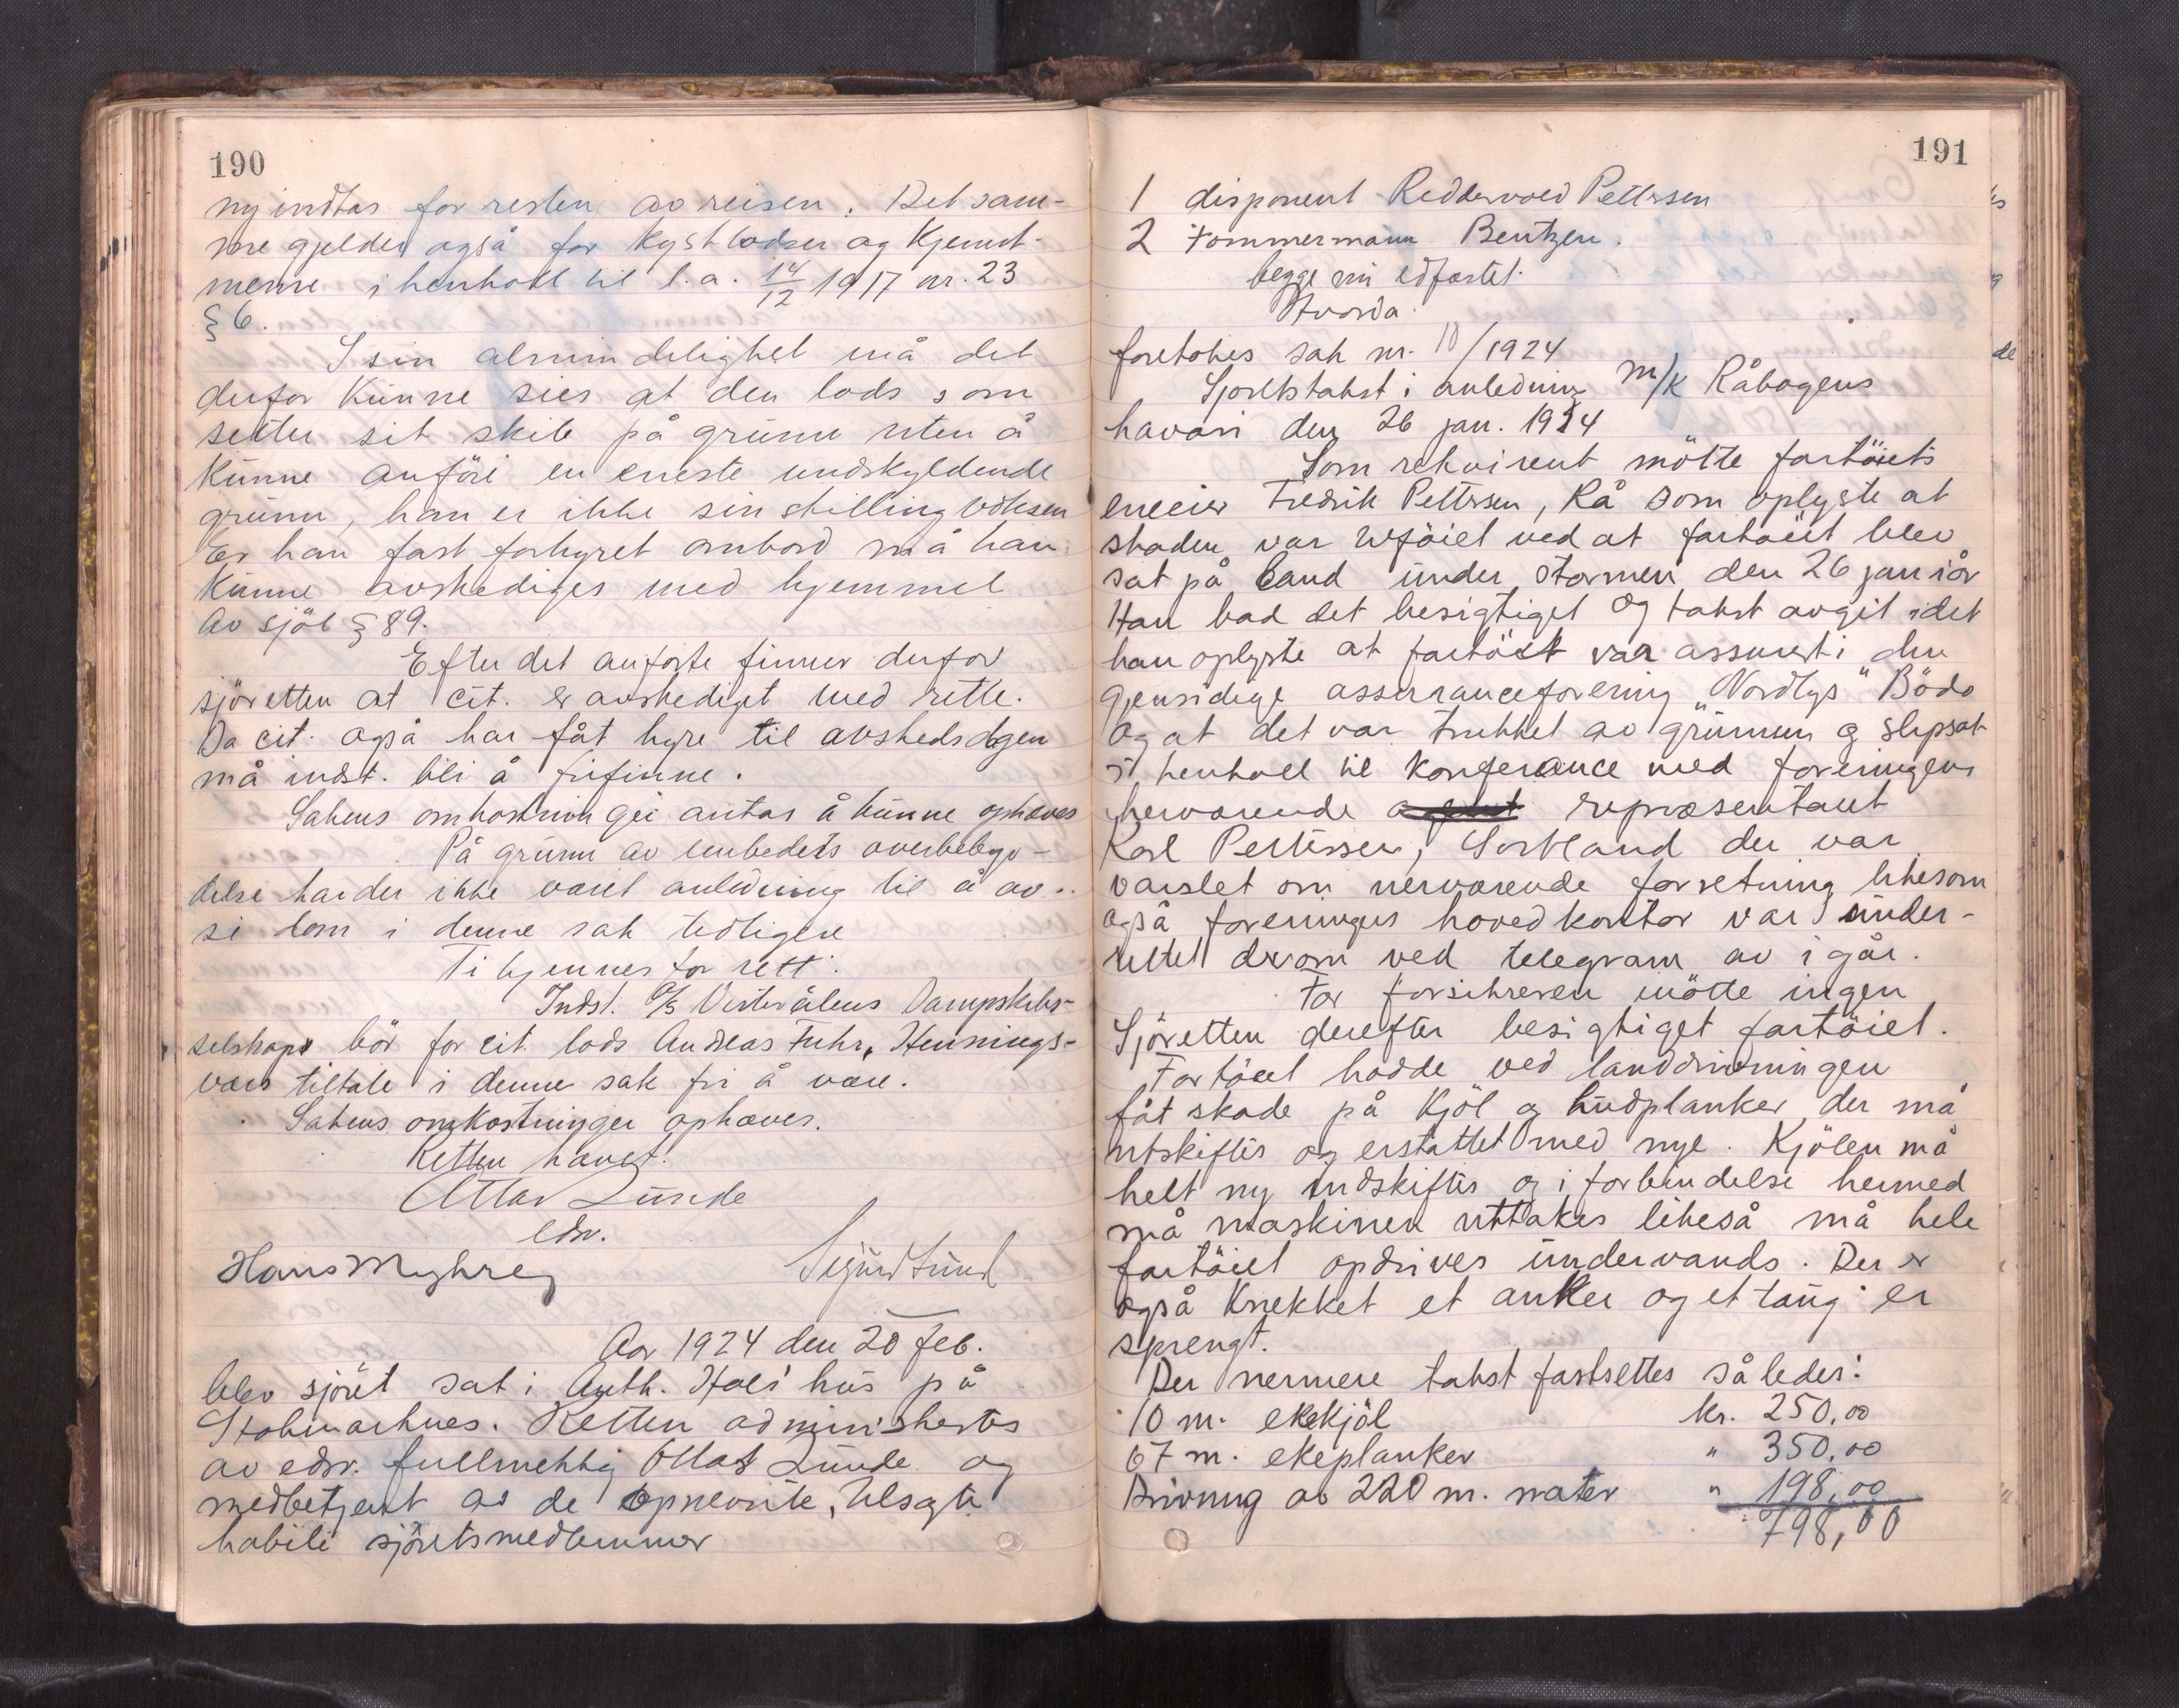 190
ny indtas for resten av reisen. Det sam-
me gjelder også for kystlodser og kjennt-
menn i henhold til l.a. 14/12 1917 nr. 23
§ 6.
I sin almindelighet må det
derfor kunne sies at den lods som
setter sit skib på grunn uten å
kunne anföre en eneste undskyldende
grunn, han er ikke sin stilling voksen
Er han fast forhyret ombord må han
kunne avskediges med hjemmel
av sjöl § 89.
Efter det anförte finner derfor
sjöretten at cit. er avskediget med rette.
Da cit. også har fåt hyre til avskedsdagen
må indst. bli å frifinne.
Sakens omkostninger antas å kunne ophæves
På grunn av embedets overbebyr-
delse har der ikke været anledning til å av-
si dom i denne sak tidligere
Ti kjennes for rett:
Indst. A/S Vesterålens Dampskibs-
selskap bör for cit. lods Andreas Fuhr, Hennings-
vær tiltale i denne sak fri å være.
Sakens omkostninger ophæves.
Retten hævet.
Ottar Lunde
edsv.
Hans Myhre
Sigurd Lund
Aar 1924 den 20 feb.
blev sjöret sat i Anth. Hols hus på
Stokmarknes. Retten administrertes
av edsv. fullmektig Ottar Lunde og
medbetjent av de opnevnte, tilsagte
habile sjöretsmedlemmer
191
1 disponent Reddervold Pettersen
2 tømmermann Bentzen.
begge nu edfæstet.
Hvorda
foretokes sak nr. 10/1924
Sjoretstakst i anledning M/K Råbogens
havari den 26 jan. 1924
Som rekvirent mötte fartöiets
eneeier Fredrik Pettersen, Rå som oplyste at
skaden var tilföiet ved at fartöiet blev
sat på land under stormen den 26 jan iår
Han bad det besigtiget og takst avgit idet
han oplyste at fartöiet var assurert i den
gjensidige assuranceforening "Nordlys" Bödo
og at det var trukket av grunnen og slipsat
i henhold til konferance med foreningens
herværende repræsentant
Karl Pettersen, Sortland der var
varslet om nerværende forretning likesom
også foreningens hovedkontor var under-
rettet derom ved telegram av igår.
For forsikreren mötte ingen
Sjöretten derefter besigtiget fartöiet.
Fartöiet hadde ved landdrivningen
fåt skade på kjöl og hudplanker der må
utskiftes og erstattet med nye. Kjölen må
helt ny indskiftes og i forbindelse hermed
må maskinen uttakes likeså må hele
fartöiet opdrives undervands. Der er
også knekket et anker og et taug er
sprengt.
Den nermere takst fastsettes således:
10 m. ekekjöl kr. 250,00
67 m. ekeplanker " 350,00
Drivning av 220 m. nater " 198,00
798,00